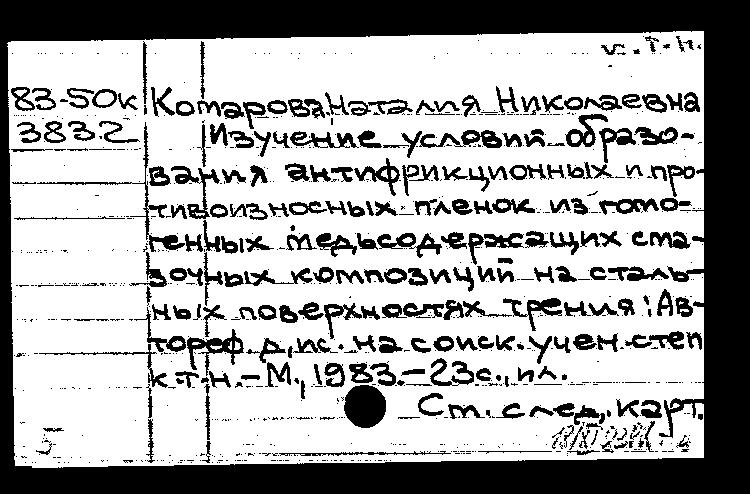 к.т.н.
83-50к Комарова, Наталия Николаевна
383.2 Изучение условий образо-
вания антифрикционных и про-
тивоизносных пленок из гомо-
генных медьсодержащих сма-
зочных композиций на сталь-
ных поверхностях трения: Ав-
тореф. дис. на соиск. учен. степ
к.т.н. - М., 1983. - 23с., ил.
Ст. след. карт.
5